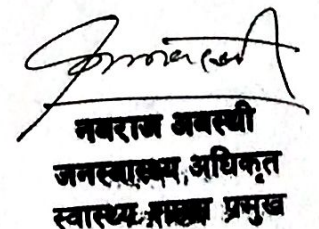 नवराज अवस्थी
जनस्वास्थ्य अधिकृत
स्वास्थ्य शाखा प्रमुख